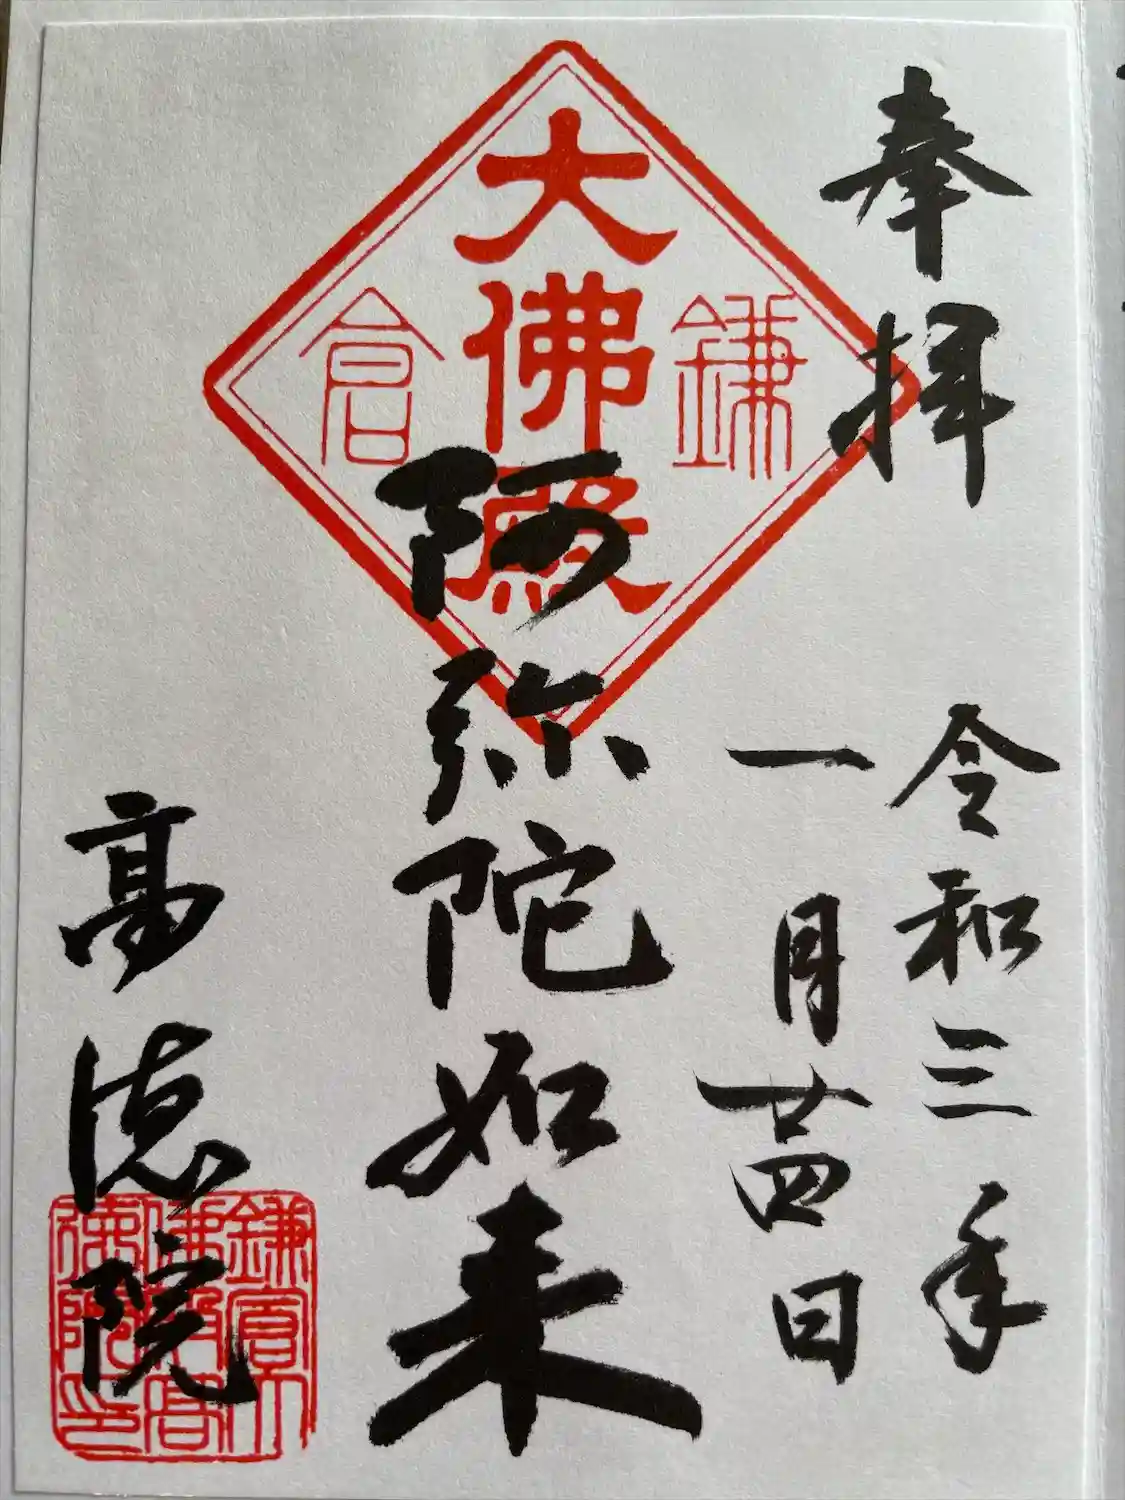 奉拝
令和三年
一月廿四日
鎌倉
大佛殿
阿弥陀如来
高徳院
鎌倉大
佛殿高
徳院印